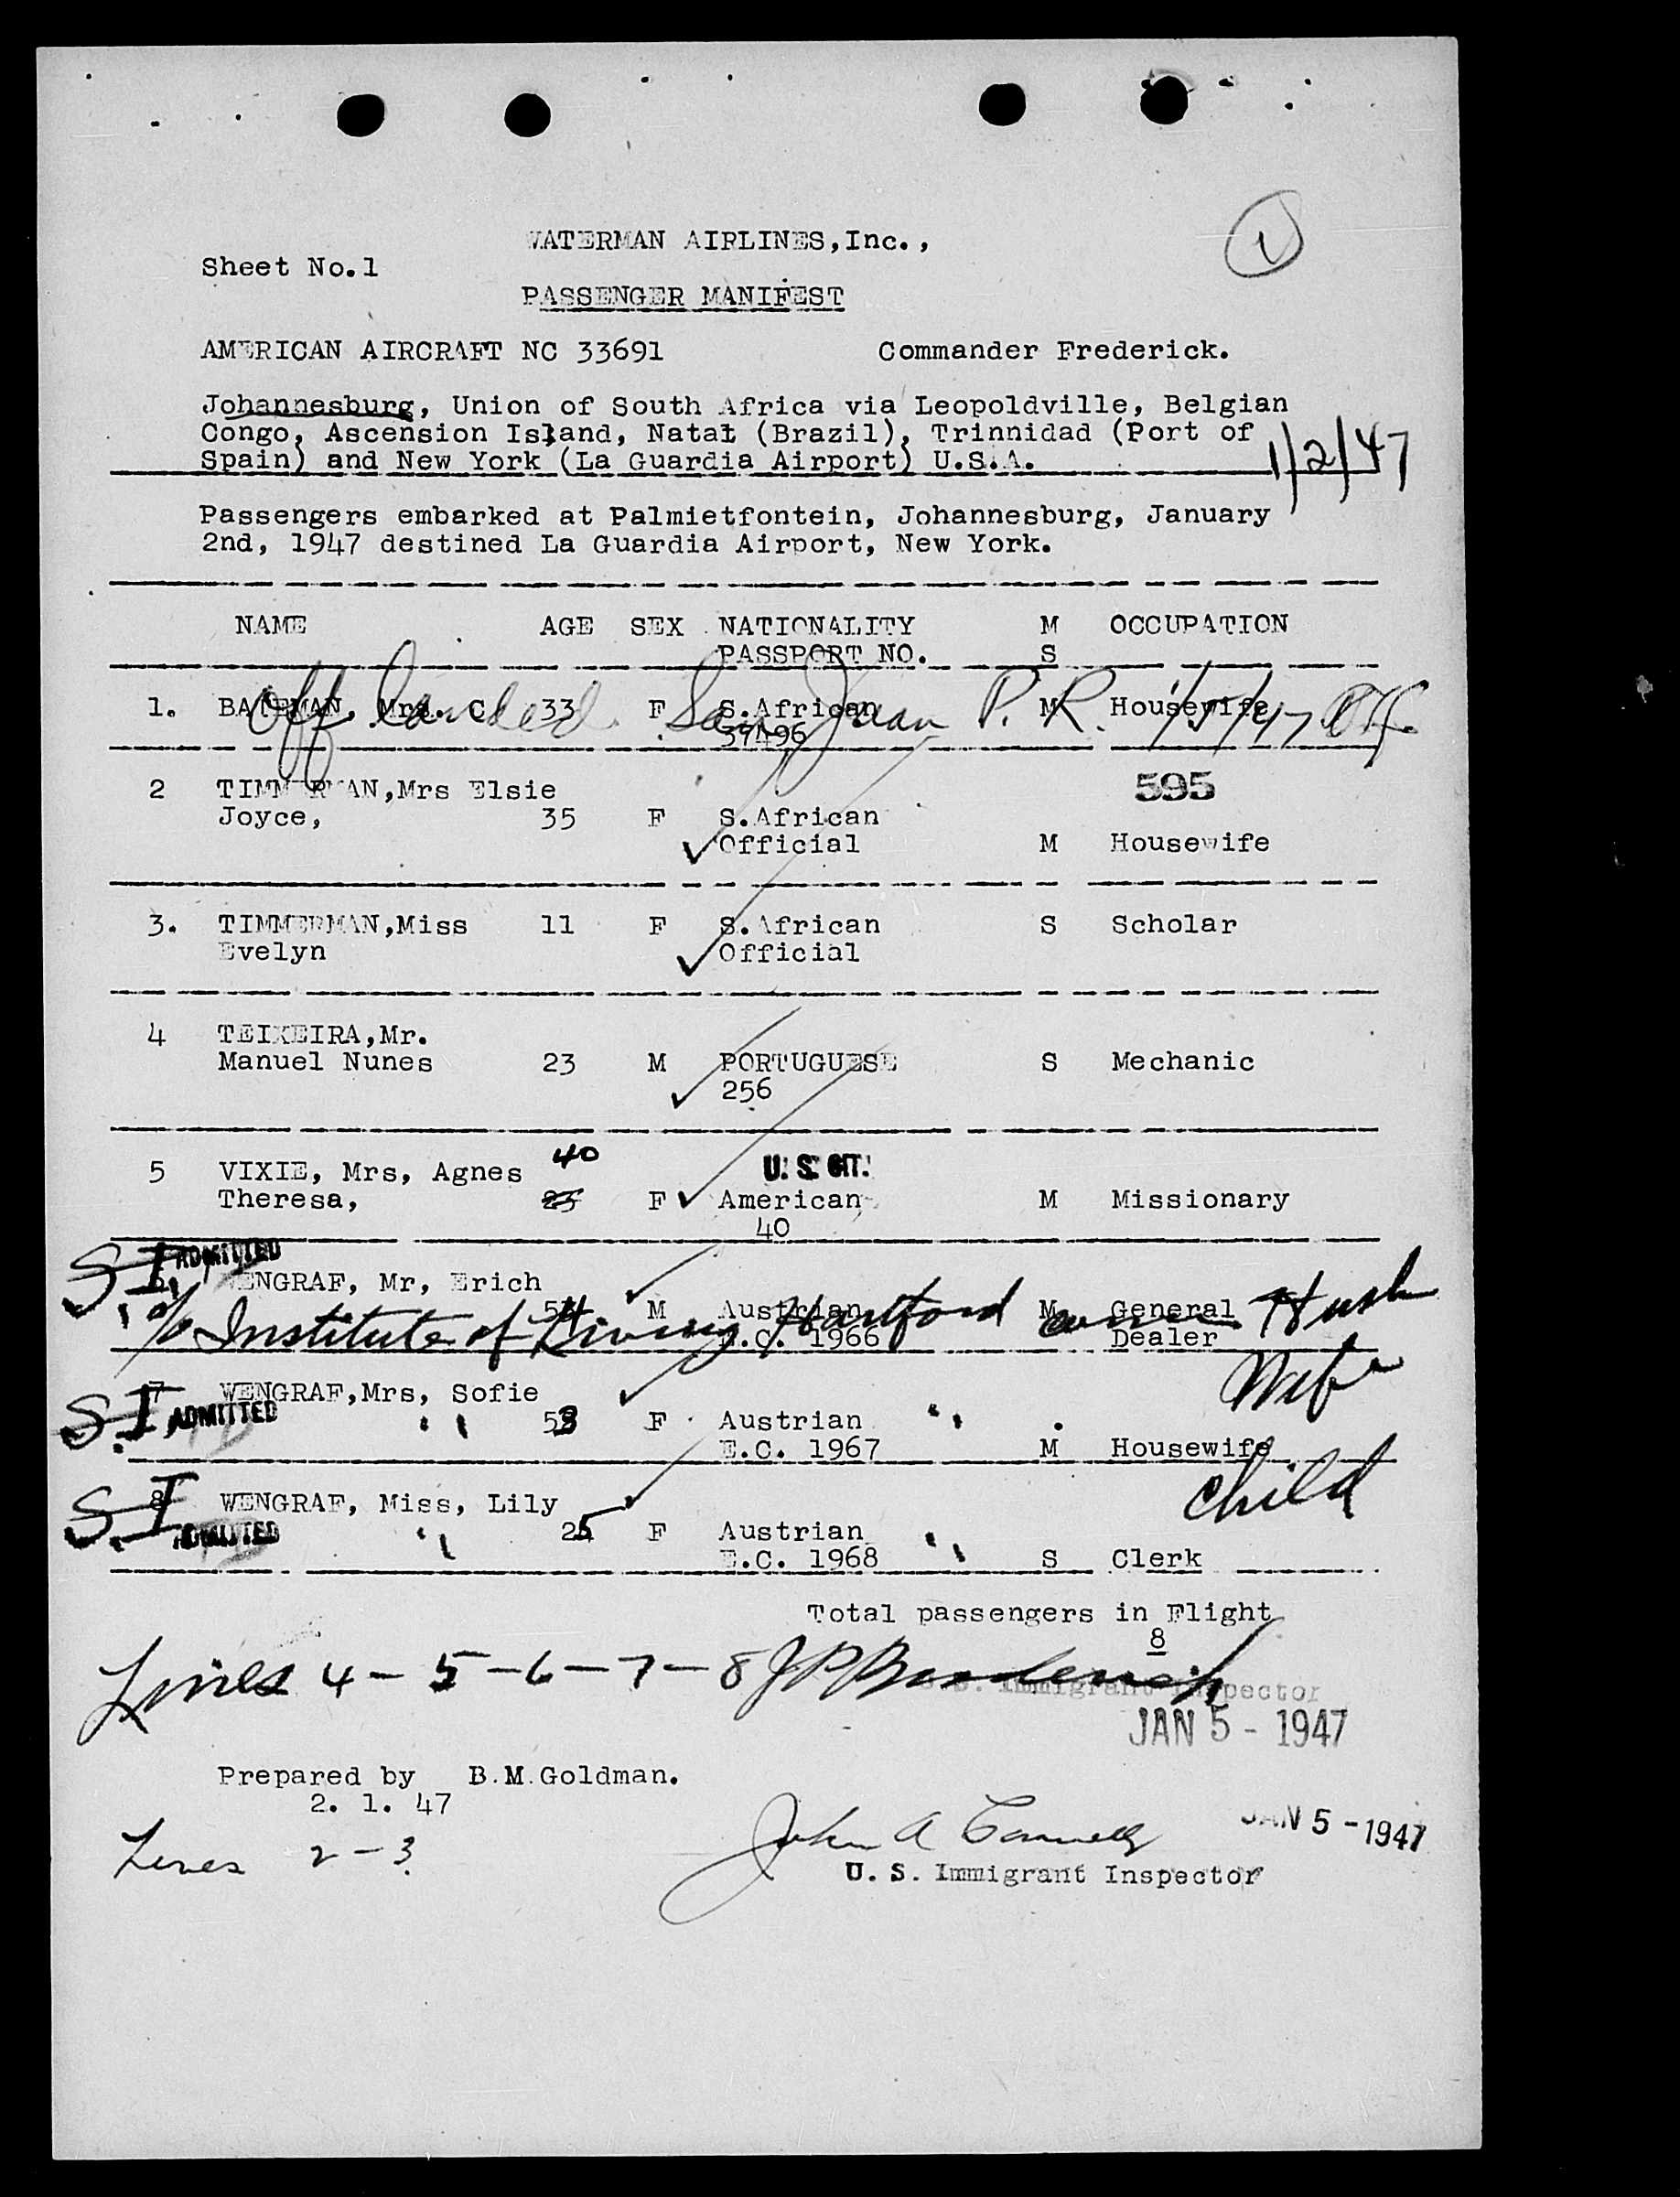 WATERMAN AIRLINES,Inc.,
Sheet No.1
PASSENGER MANIFEST
AMERICAN AIRCRAFT NC 33691 Commander Frederick.
Johannesburg, Union of South Africa via Leopoldville, Belgian
Congo, Ascension Island, Natal (Brazil), Trinnidad (Port of
Spain) and New York (La Guardia Airport) U.S.A. 1/2/47
Passengers embarked at Palmietfontein, Johannesburg, January
2nd, 1947 destined La Guardia Airport, New York.
NAME AGE SEX NATIONALITY M OCCUPATION
PASSPORT NO. S
Off landed San Juan P.R. 1/5/47
1. BATEMAN, Mrs. C. 33 F S.African M Housewife
37496
595
2 TIMMERMAN,Mrs Elsie
Joyce, 35 F S.African
Official M Housewife
3. TIMMERMAN,Miss 11 F S.African S Scholar
Evelyn Official
4 TEIXEIRA,Mr.
Manuel Nunes 23 M PORTUGUESE S Mechanic
256
5 VIXIE, Mrs, Agnes 40 U.S. CIT.
Theresa, F American M Missionary
40
S.I. ADMITTED
6 WENGRAF, Mr, Erich
54 M Austrian M General Husb
E.C. 1966 Dealer
c/o Institute of Living Hartford Conn.
7 WENGRAF,Mrs, Sofie Wife
S.I. ADMITTED " 53 F Austrian "
E.C. 1967 M Housewife
S.I. 8 WENGRAF, Miss, Lily Child
ADMITTED " 25 F Austrian "
E.C. 1968 S Clerk
Total passengers in Flight
8
Lines 4-5-6-7-8 JP
U.S. Immigrant Inspector
JAN 5 - 1947
Prepared by B.M.Goldman.
2. 1. 47
JAN 5 - 1947
Lines 2-3 John A Connelly
U. S. Immigrant Inspector